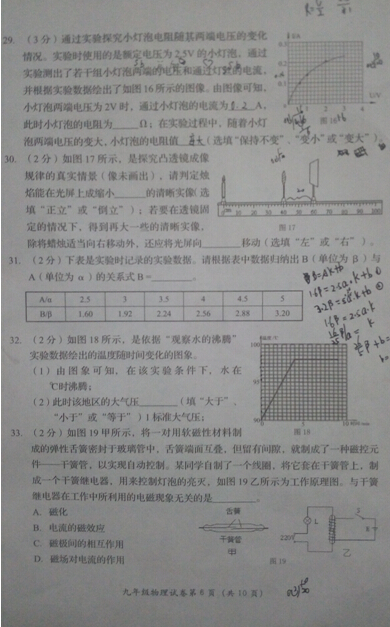 29. (3分)通过实验探究小灯泡电阻随其两端电压的变化
情况。实验时使用的是额定电压为2.5V的小灯泡，通过
实验测出了若干组小灯泡两端的电压和通过灯丝的电流，
并根据实验数据绘出了如图16所示的图像。由图像可知，
小灯泡两端电压为2V时，通过小灯泡的电流为0.2 A，
此时小灯泡的电阻为____Ω；在实验过程中，随着小灯
泡两端电压的变大，小灯泡的电阻值变大(选填"保持不变"、"变小"或"变大")。
I/A
0.3
0.2
0.1
0 1 2 3 4
30. (2分)如图17所示，是探究凸透镜成像
规律的真实情景(像未画出)，请判定烛
焰能在光屏上成缩小____的清晰实像(选
填"正立"或"倒立")；若要在透镜固
定的情况下，得到再大一些的清晰实像，
除将蜡烛适当向右移动外，还应将光屏向____移动(选填"左"或"右")。
图17
31. (2分)下表是实验时记录的数据。请根据表中数据归纳出B(单位为β)与
A(单位为α)的关系式B=____。
A/α 2.5 3 3.5 4 4.5 5
B/β 1.60 1.92 2.24 2.56 2.88 3.20
32. (2分)如图18所示，是依据"观察水的沸腾"
实验数据绘出的温度随时间变化的图象。
(1)由图象可知，在该实验条件下，水在
____℃时沸腾；
(2)此时该地区的大气压____(填"大于"、
"小于"或"等于")1标准大气压；
图18
33. (2分)如图19甲所示，将一对用软磁性材料制
成的弹性舌簧密封于玻璃管中，舌簧端面互叠，但留有间隙，就制成了一种磁控元
件——干簧管，以实现自动控制。某同学自制了一个线圈，将它套在干簧管上，制
成一个干簧继电器，用来控制灯泡的亮灭，如图19乙所示为工作原理图。与干簧
继电器在工作中所利用的电磁现象无关的是____。
A. 磁化
B. 电流的磁效应
C. 磁极间的相互作用
D. 磁场对电流的作用
舌簧
干簧管
甲
L
220V
S
乙
图19
九年级物理试卷第6页(共10页)